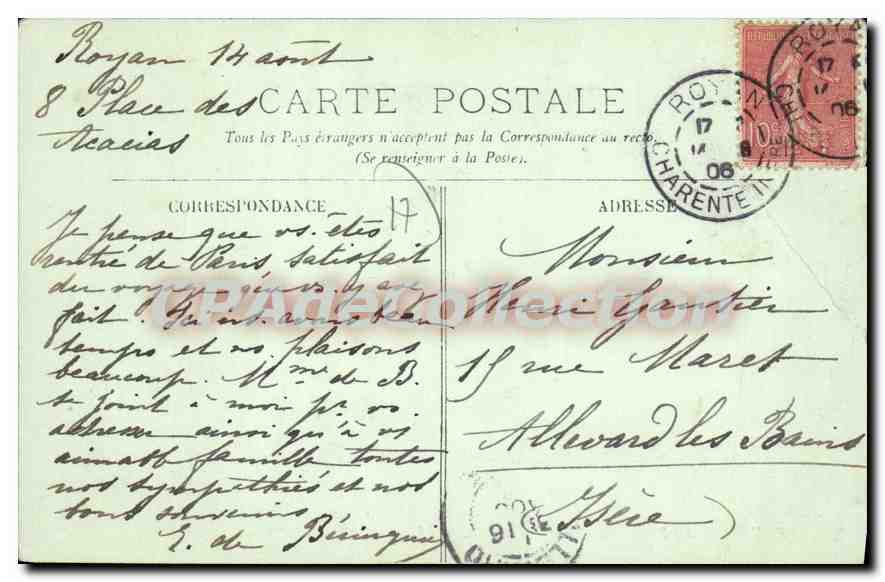 Royan 14 août
8 Place des
Acacias
CARTE POSTALE
Tous les Pays étrangers n'acceptent pas la Correspondance au recto.
(Se renseigner à la Poste).
CORRESPONDANCE
17
Je pense que vs. êtes
rentré de Paris satisfait
du voyage que vs. y avez
fait. Ici ns. avons beau
temps et ns plaisons
beaucoup. Mme de B.
se joint à moi pr. vs.
adresser ainsi qu'à vs
aimable famille toutes
nos sympathies et nos
bons souvenirs
E. de
ADRESSE
Monsieur
Henri Gautier
15 rue Maret
Allevard les Bains
(Isère)
ROYAN
17
06
CHARENTE INFRE
ROYAN
17
06
10c
16
CPAdeCollection.com